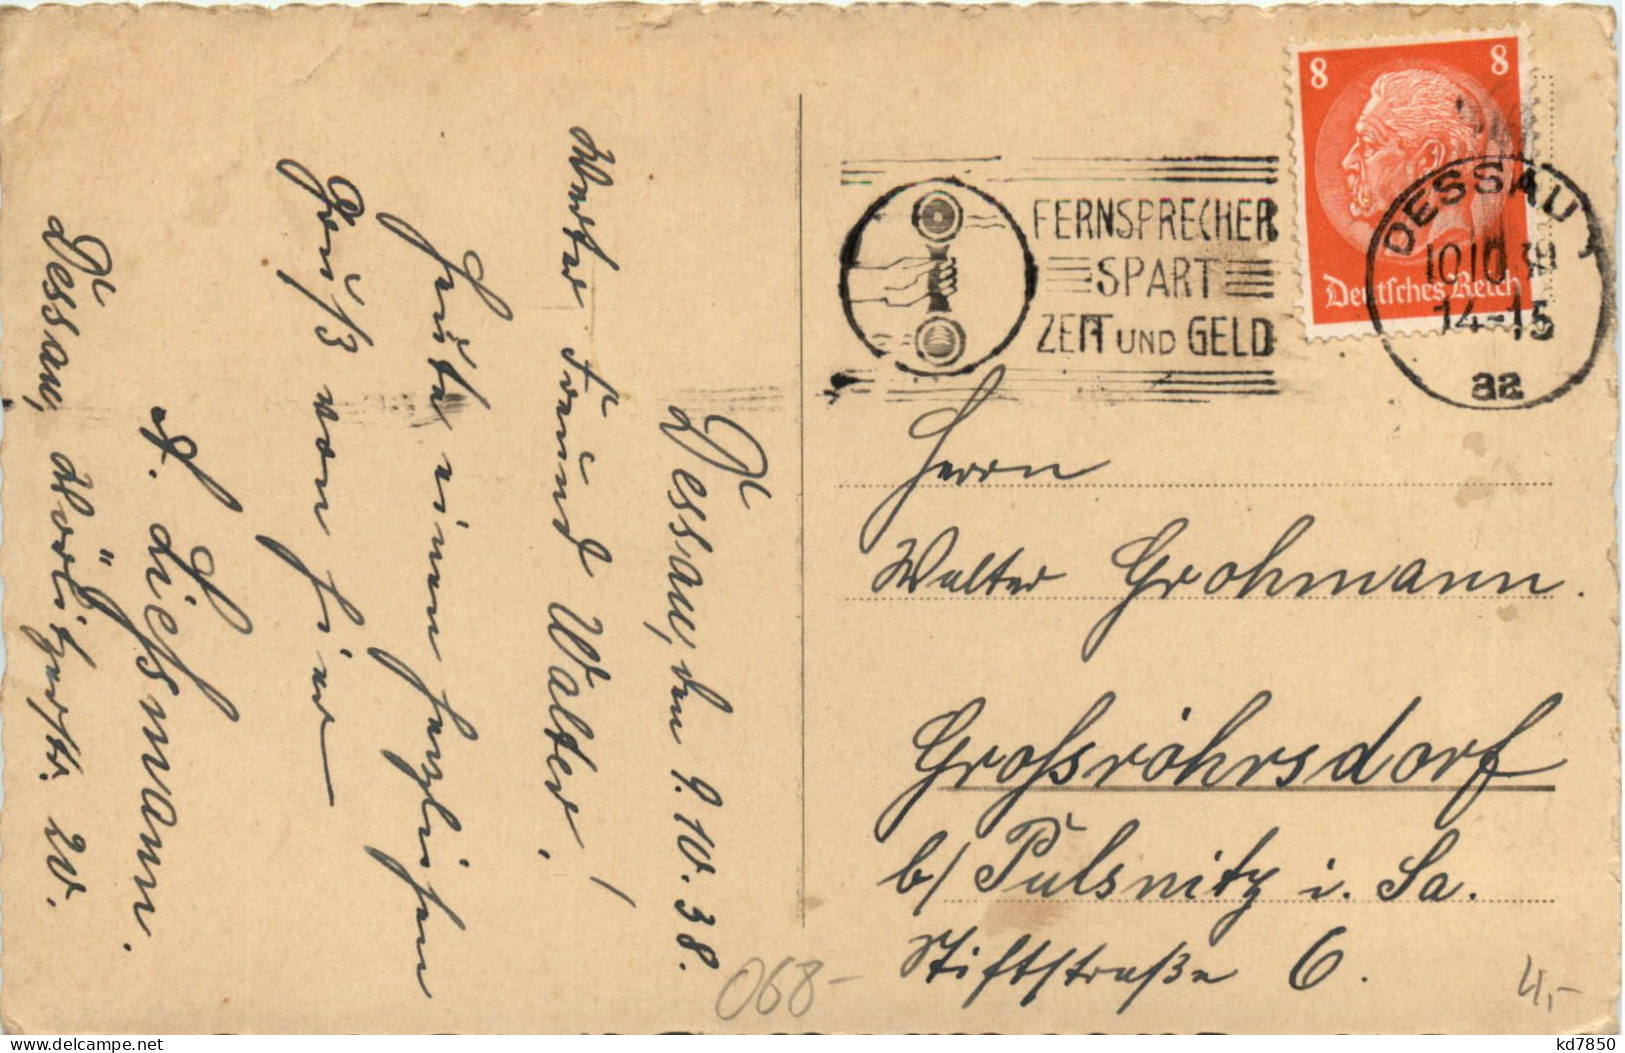 Dessau, den 9.10.38.
Werter Freund Walter!
Heute einen herzlichen
Gruß von hier
A. Dießmann.
Dessau, Wörlitzerstr. 20.
8 8
Deutsches Reich
FERNSPRECHER
SPART
ZEIT UND GELD
DESSAU 1
10.10.38
14-15
aa
Herrn
Walter Grohmann.
Großröhrsdorf
b/ Pulsnitz i. Sa.
Stiftstraße 6.
068-
4,-
delcampe.net
kd7850